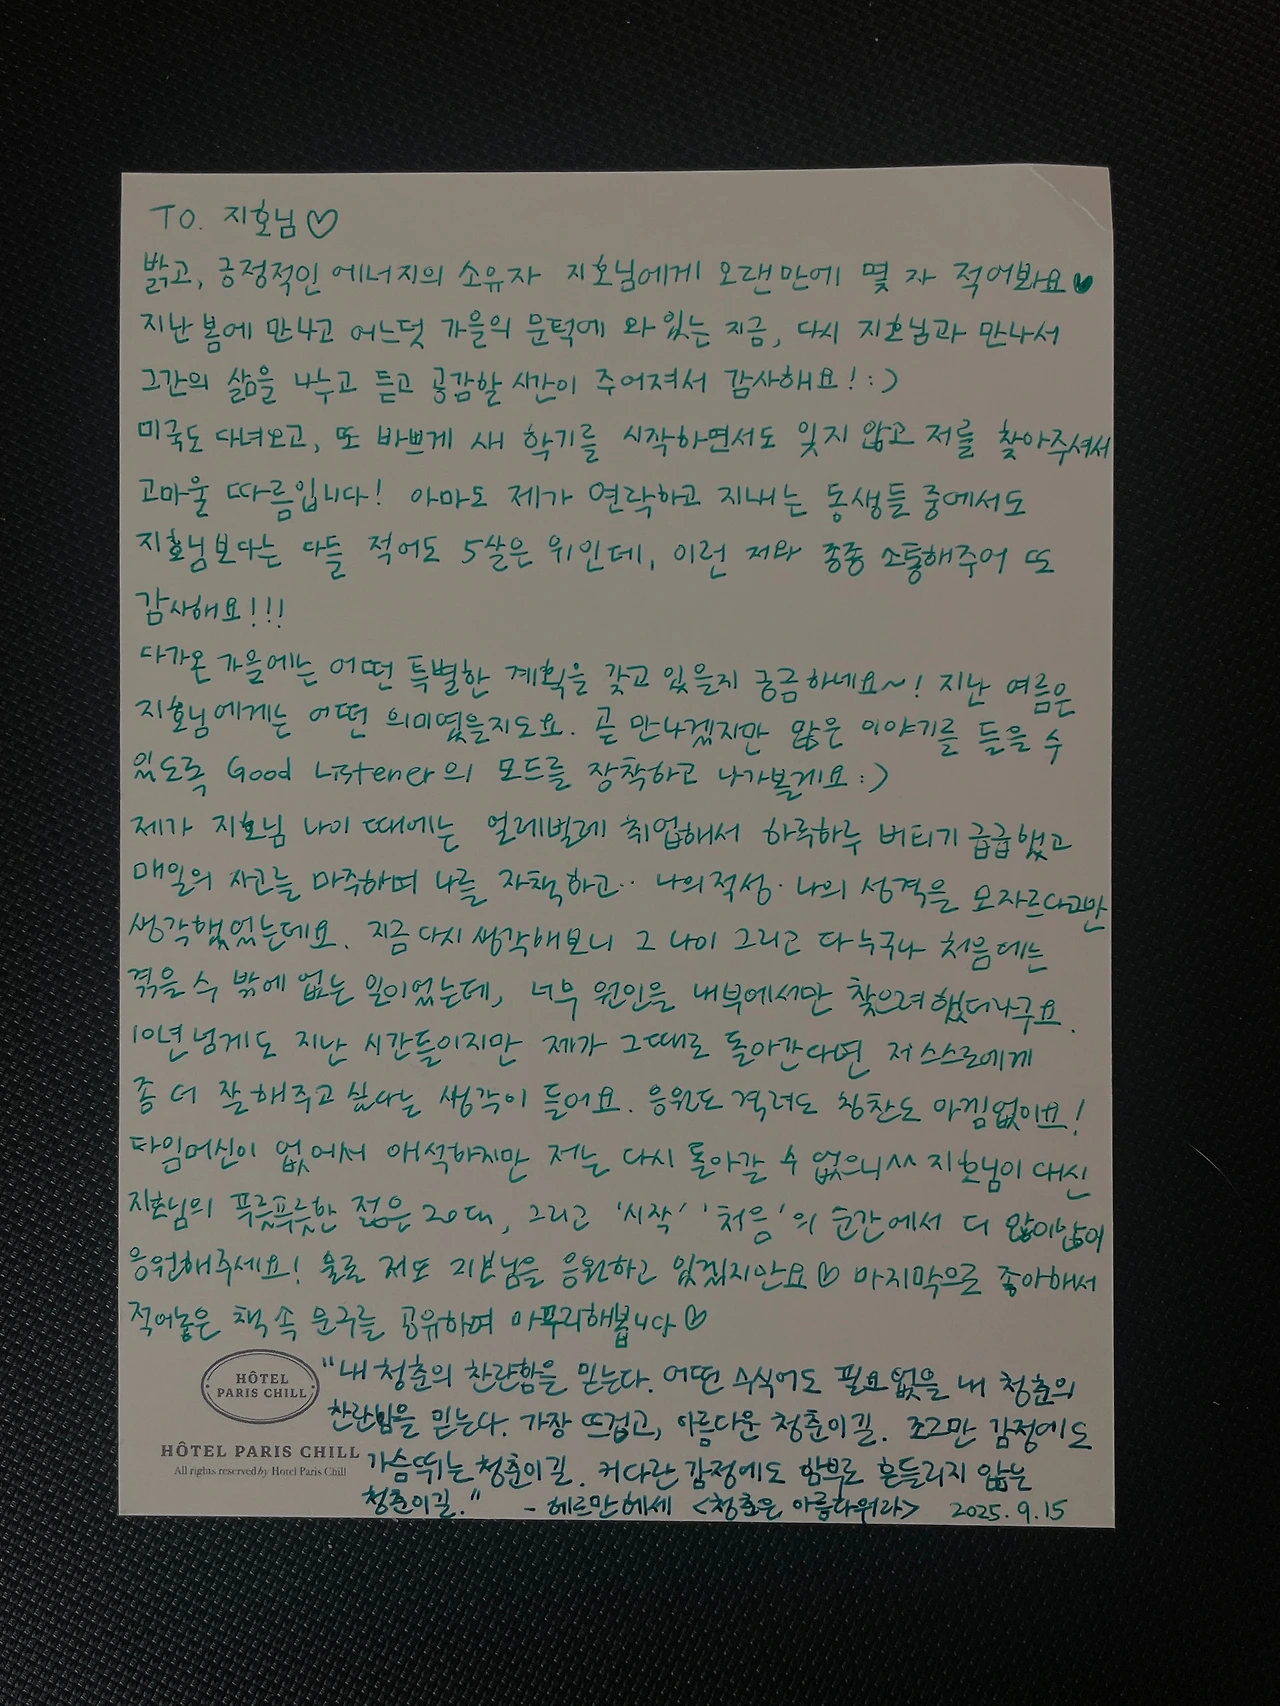 TO. 지호님♡
밝고, 긍정적인 에너지의 소유자 지호님에게 오랜만에 몇 자 적어봐요♥
지난 봄에 만나고 어느덧 가을의 문턱에 와 있는 지금, 다시 지호님과 만나서
그간의 삶을 나누고 듣고 공감할 시간이 주어져서 감사해요! :)
미국도 다녀오고, 또 바쁘게 새 학기를 시작하면서도 잊지 않고 저를 찾아주셔서
고마울 따름입니다! 아마도 제가 연락하고 지내는 동생들 중에서도
지호님보다는 다들 적어도 5살은 위인데, 이런 저와 종종 소통해주어 또
감사해요!!!
다가온 가을에는 어떤 특별한 계획을 갖고 있을지 궁금하네요~! 지난 여름은
지호님에게는 어떤 의미였을지도요. 곧 만나겠지만 많은 이야기를 들을 수
있도록 Good Listener의 모드를 장착하고 나가볼게요 :)
제가 지호님 나이 때에는 얼레벌레 취업해서 하루하루 버티기 급급했고
매일의 사고를 마주하며 나를 자책하고.. 나의 적성·나의 성격을 모자르다고만
생각했었는데요. 지금 다시 생각해보니 그 나이 그리고 다 누구나 처음에는
겪을 수 밖에 없는 일이었는데, 너무 원인을 내부에서만 찾으려 했더라구요.
10년 넘게도 지난 시간들이지만 제가 그때로 돌아간다면 저 스스로에게
좀 더 잘 해주고 싶다는 생각이 들어요. 응원도 격려도 칭찬도 아낌없이요!
타임머신이 없어서 애석하지만 저는 다시 돌아갈 수 없으니^^ 지호님이 대신
지호님의 푸릇푸릇한 젊은 20대, 그리고 '시작' '처음'의 순간에서 더 많이많이
응원해주세요! 물론 저도 지호님을 응원하고 있겠지만요♡ 마지막으로 좋아해서
적어놓은 책 속 문구를 공유하며 마무리해봅니다♡
"내 청춘의 찬란함을 믿는다. 어떤 수식어도 필요 없을 내 청춘의
찬란함을 믿는다. 가장 뜨겁고, 아름다운 청춘이길. 조그만 감정에도
가슴뛰는 청춘이길. 커다란 감정에도 함부로 흔들리지 않는
청춘이길." - 헤르만헤세 <청춘은 아름다워라> 2025. 9. 15
HÔTEL
PARIS CHILL
HÔTEL PARIS CHILL
All rights reserved by Hotel Paris Chill